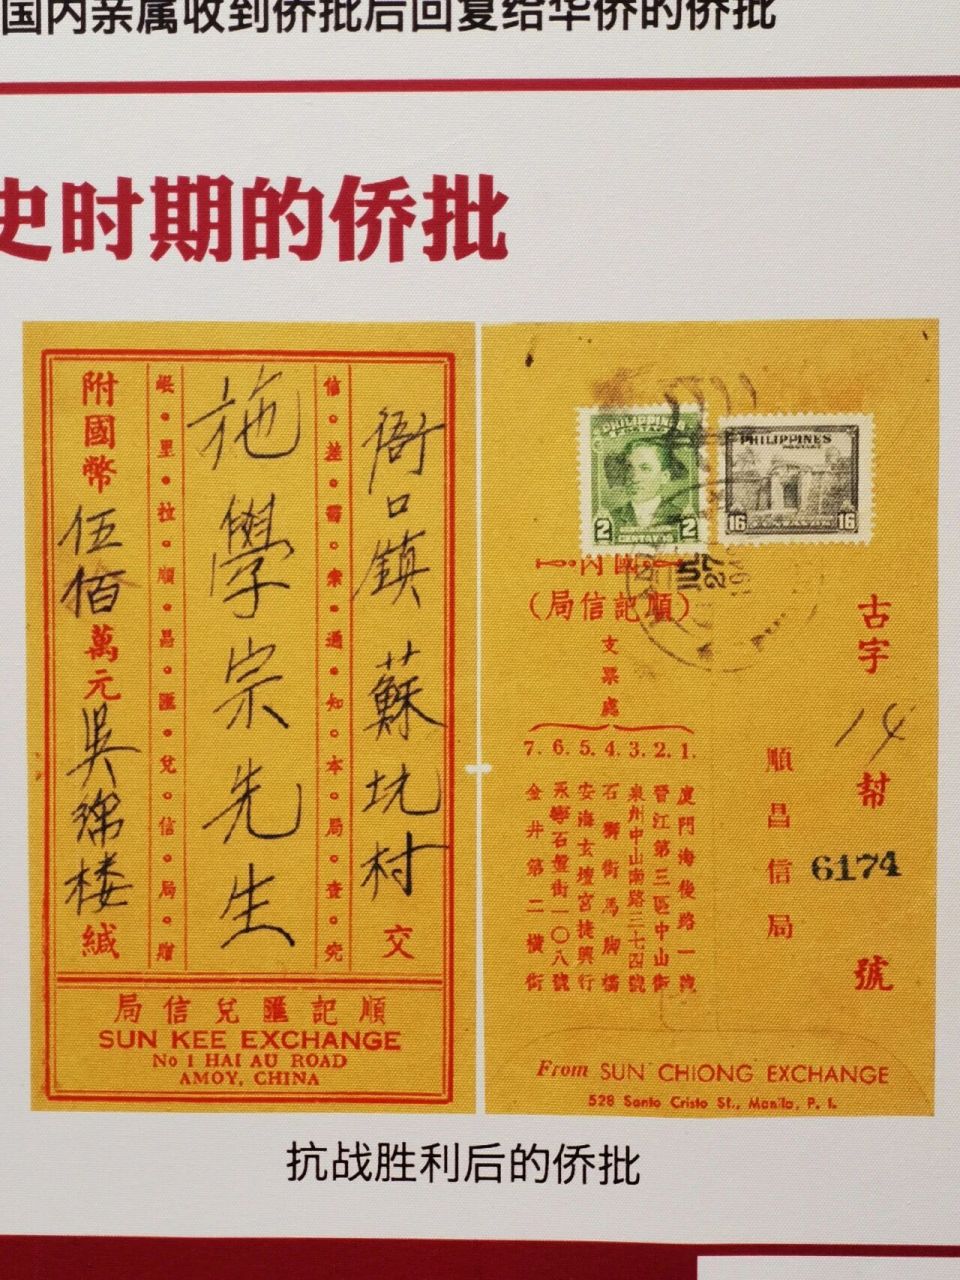 国内亲属收到侨批后回复给华侨的侨批
史时期的侨批
衙口鎮蘇坑村交
信差需索通知本局查究
施學宗先生
岷里拉順昌匯兌信局贈
附國幣伍佰萬元吳綿楼緘
局信兌匯記順
SUN KEE EXCHANGE
No 1 HAI AU ROAD
AMOY, CHINA
PHILIPPINES
2 CENTAVOS 2
PHILIPPINES
16 CENTAVOS 16
27
內國
(局信記順)
支票處
1. 廈門海後路一號
2. 晉江第三區中山街
3. 泉州中山南路三七四號
4. 石獅街馬脚橋
5. 安海玄壇宮捷興行
6. 永寧石盤街一〇八號
7. 金井第二橫街
古字 14 幫 6174 號
順昌信局
From SUN CHIONG EXCHANGE
528 Santo Cristo St., Manila, P. I.
抗战胜利后的侨批